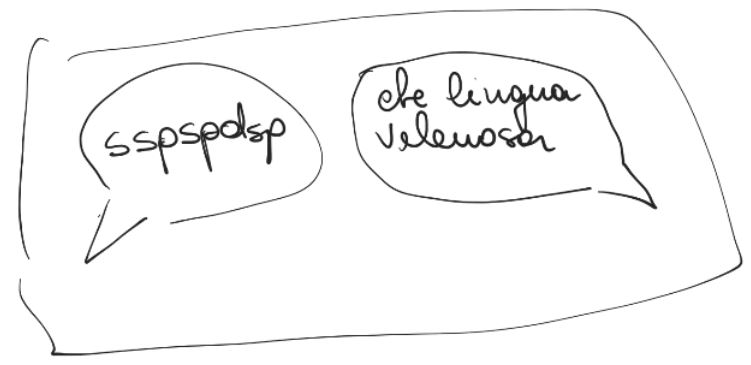 sspspdsp
che lingua
velenosa